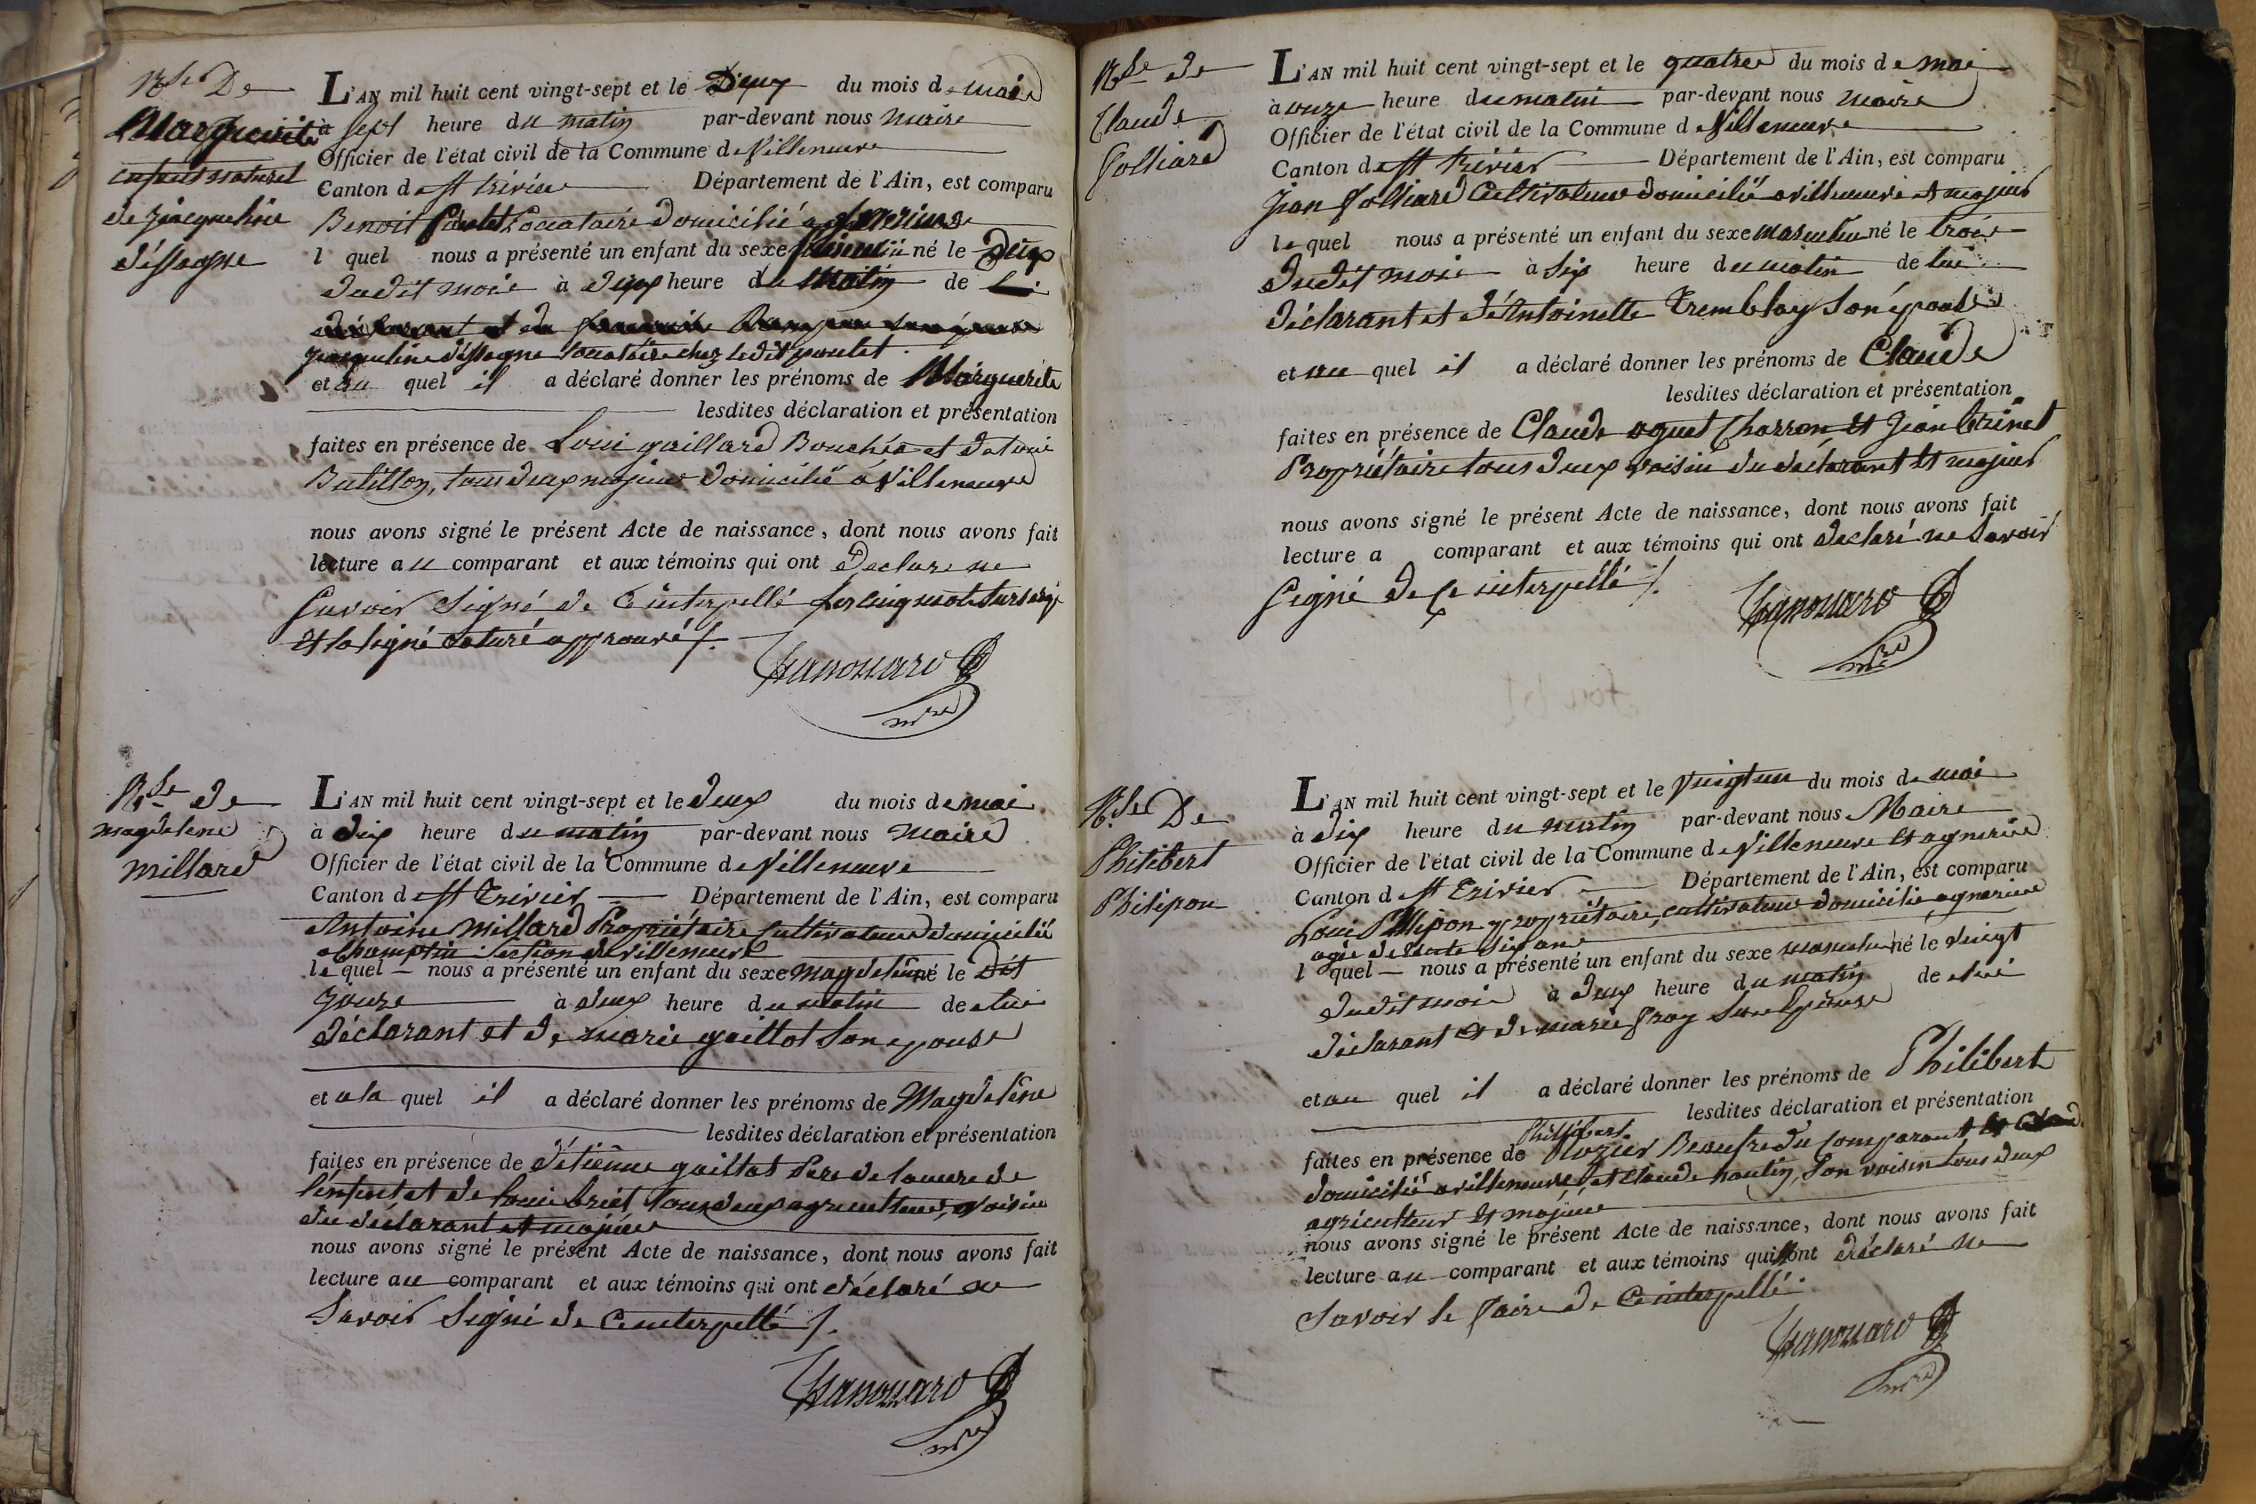 Nce De
Marguerite
enfant naturel
de Jacqueline
déssagne
L'AN mil huit cent vingt-sept et le Deux du mois de mai
à sept heure du matin par-devant nous maire
Officier de l'état civil de la Commune de Villeneuve
Canton de St trivier Département de l'Ain, est comparu
Benoit Poulet Locataire domicilié a
l quel nous a présenté un enfant du sexe feminin né le Deux
dudit mois à deux heure du Matin de
Jacqueline déssagne locataire chez ledit poulet.
et au quel il a déclaré donner les prénoms de Marguerite
lesdites déclaration et présentation
faites en présence de Loui gaillard Bouchée et de loui
Batillon, tous deux majeur domicilié a Villeneuve
nous avons signé le présent Acte de naissance, dont nous avons fait
lecture au comparant et aux témoins qui ont Declare ne
Savoir Signé de Ce interpellé les cinq mots
et la ligne raturé approuvé
mre
Nce de
magdelene
millard
L'AN mil huit cent vingt-sept et le deux du mois de mai
à dix heure du matin par-devant nous maire
Officier de l'état civil de la Commune de Villeneuve
Canton de St Trivier Département de l'Ain, est comparu
Antoine Millard Propriétaire Cultivateur domicilié
a Champtin Section de villeneuve
le quel nous a présenté un enfant du sexe magdelene né le dit
jour à deux heure du matin de lui
déclarant et de marie gaillot Son epouse
et a la quel il a déclaré donner les prénoms de Magdelène
lesdites déclaration et présentation
faites en présence de d'étienne gaillot Pere de la mere de
l'enfent, et de Loui briet, tous deux agriculteur, voisin
du déclarant et majeur
nous avons signé le présent Acte de naissance, dont nous avons fait
lecture au comparant et aux témoins qui ont déclaré ne
Savoir Signé de Ce interpellé
mre
Nce de
Claude
Folliard
L'AN mil huit cent vingt-sept et le quatre du mois de mai
à onze heure du matin par-devant nous maire
Officier de l'état civil de la Commune de Villeneuve
Canton de St trivier Département de l'Ain, est comparu
Jean folliard Cultivateur domicilié a villeneuve et majeur
le quel nous a présenté un enfant du sexe masculin né le trois
dudit mois à Six heure du matin de lui
déclarant et d'Antoinette Tremblay Son épouse
et au quel il a déclaré donner les prénoms de Claude
lesdites déclaration et présentation
faites en présence de Claude oguet Charron et Jean trinet
Propriétaire tous deux voisin du déclarant et majeur
nous avons signé le présent Acte de naissance, dont nous avons fait
lecture a comparant et aux témoins qui ont declaré ne Savoir
Signé de Ce interpellé
mre
Nce De
Philibert
Philipon
L'AN mil huit cent vingt-sept et le vingt un du mois de mai
à dix heure du matin par-devant nous Maire
Officier de l'état civil de la Commune de Villeneuve et agnereins
Canton de St Trivier Département de l'Ain, est comparu
Loui Philipon propriétaire, cultivateur domicilié agnereins
agé de trente six ans
l quel nous a présenté un enfant du sexe masculin né le vingt
dudit mois à deux heure du matin de lui
déclarant et de marie froy Son Epouse
et au quel il a déclaré donner les prénoms de Philibert
lesdites déclaration et présentation
Philibert
faites en présence de Rozier Beaufre du Comparant et
domicilié a villeneuve, et Claude nautin, Son voisin tous deux
agriculteur et majeur
nous avons signé le présent Acte de naissance, dont nous avons fait
lecture au comparant et aux témoins qui ont déclaré ne
Savoir le faire de Ce interpellé.
mre